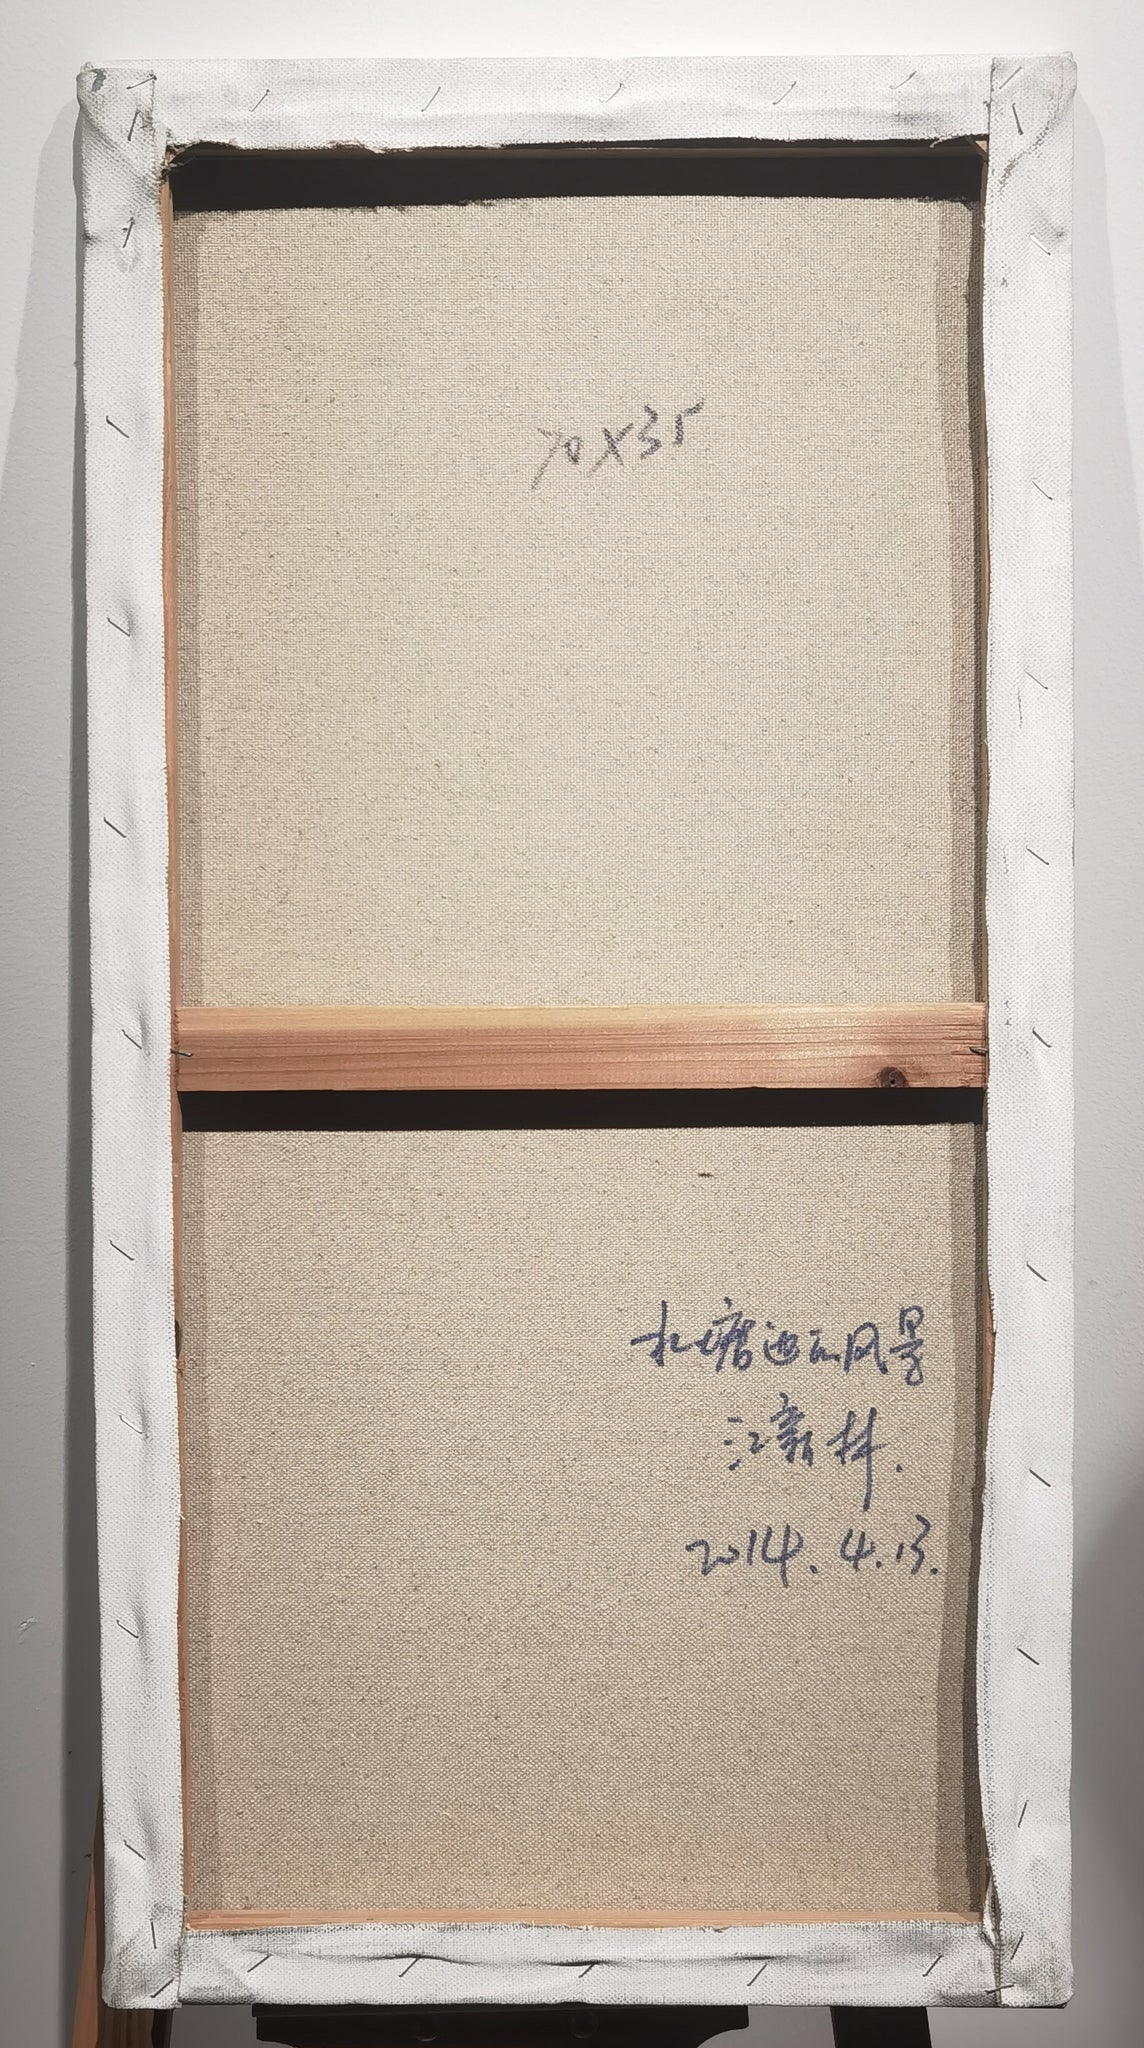 70X35
水塘边的风景
江新林.
2014.4.13.